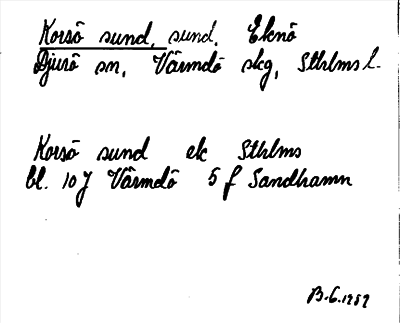 Korsö sund, sund, Eknö
Djurö sn, Värmdö skg, Sthlms l.
Korsö sund ek Sthlms
bl. 10 J Värmdö 5 f Sandhamn
B.G. 1959